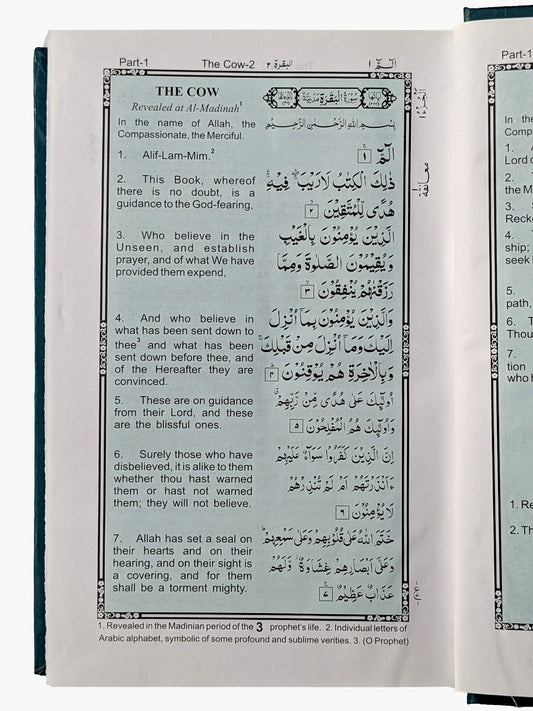 Part-1 The Cow-2 البقرة ٢ الٓمّٓ ١
THE COW
Revealed at Al-Madinah1
In the name of Allah, the
Compassionate, the Merciful.
1. Alif-Lam-Mim.2
2. This Book, whereof
there is no doubt, is a
guidance to the God-fearing,
3. Who believe in the
Unseen, and establish
prayer, and of what We have
provided them expend,
4. And who believe in
what has been sent down to
thee3 and what has been
sent down before thee, and
of the Hereafter they are
convinced.
5. These are on guidance
from their Lord, and these
are the blissful ones.
6. Surely those who have
disbelieved, it is alike to them
whether thou hast warned
them or hast not warned
them; they will not believe.
7. Allah has set a seal on
their hearts and on their
hearing, and on their sight is
a covering, and for them
shall be a torment mighty.
سُوْرَةُ الْبَقَرَةِ مَدَنِيَّةٌ
بِسْمِ اللهِ الرَّحْمٰنِ الرَّحِيْمِ
الٓمّٓ ١
ذٰلِكَ الْكِتٰبُ لَا رَيْبَ فِيْهِ
هُدًى لِّلْمُتَّقِيْنَ ٢
الَّذِيْنَ يُؤْمِنُوْنَ بِالْغَيْبِ
وَيُقِيْمُوْنَ الصَّلٰوةَ وَمِمَّا
رَزَقْنٰهُمْ يُنْفِقُوْنَ ٣
وَالَّذِيْنَ يُؤْمِنُوْنَ بِمَآ اُنْزِلَ
اِلَيْكَ وَمَآ اُنْزِلَ مِنْ قَبْلِكَ
وَبِالْاٰخِرَةِ هُمْ يُوْقِنُوْنَ ٤
اُولٰٓئِكَ عَلٰى هُدًى مِّنْ رَّبِّهِمْ
وَاُولٰٓئِكَ هُمُ الْمُفْلِحُوْنَ ٥
اِنَّ الَّذِيْنَ كَفَرُوْا سَوَآءٌ عَلَيْهِمْ
ءَاَنْذَرْتَهُمْ اَمْ لَمْ تُنْذِرْهُمْ
لَا يُؤْمِنُوْنَ ٦
خَتَمَ اللهُ عَلٰى قُلُوْبِهِمْ وَعَلٰى سَمْعِهِمْ
وَعَلٰٓى اَبْصَارِهِمْ غِشَاوَةٌ وَّلَهُمْ
عَذَابٌ عَظِيْمٌ ٧
معانقة
1. Revealed in the Madinian period of the prophet's life. 2. Individual letters of
Arabic alphabet, symbolic of some profound and sublime verities. 3. (O Prophet)
3
Part-1
In the
Comp
1.
Lord
2.
the M
3.
Recko
4.
ship;
seek
5.
path,
6. T
Thou
7.
tion
who h
1. Re
2. Th